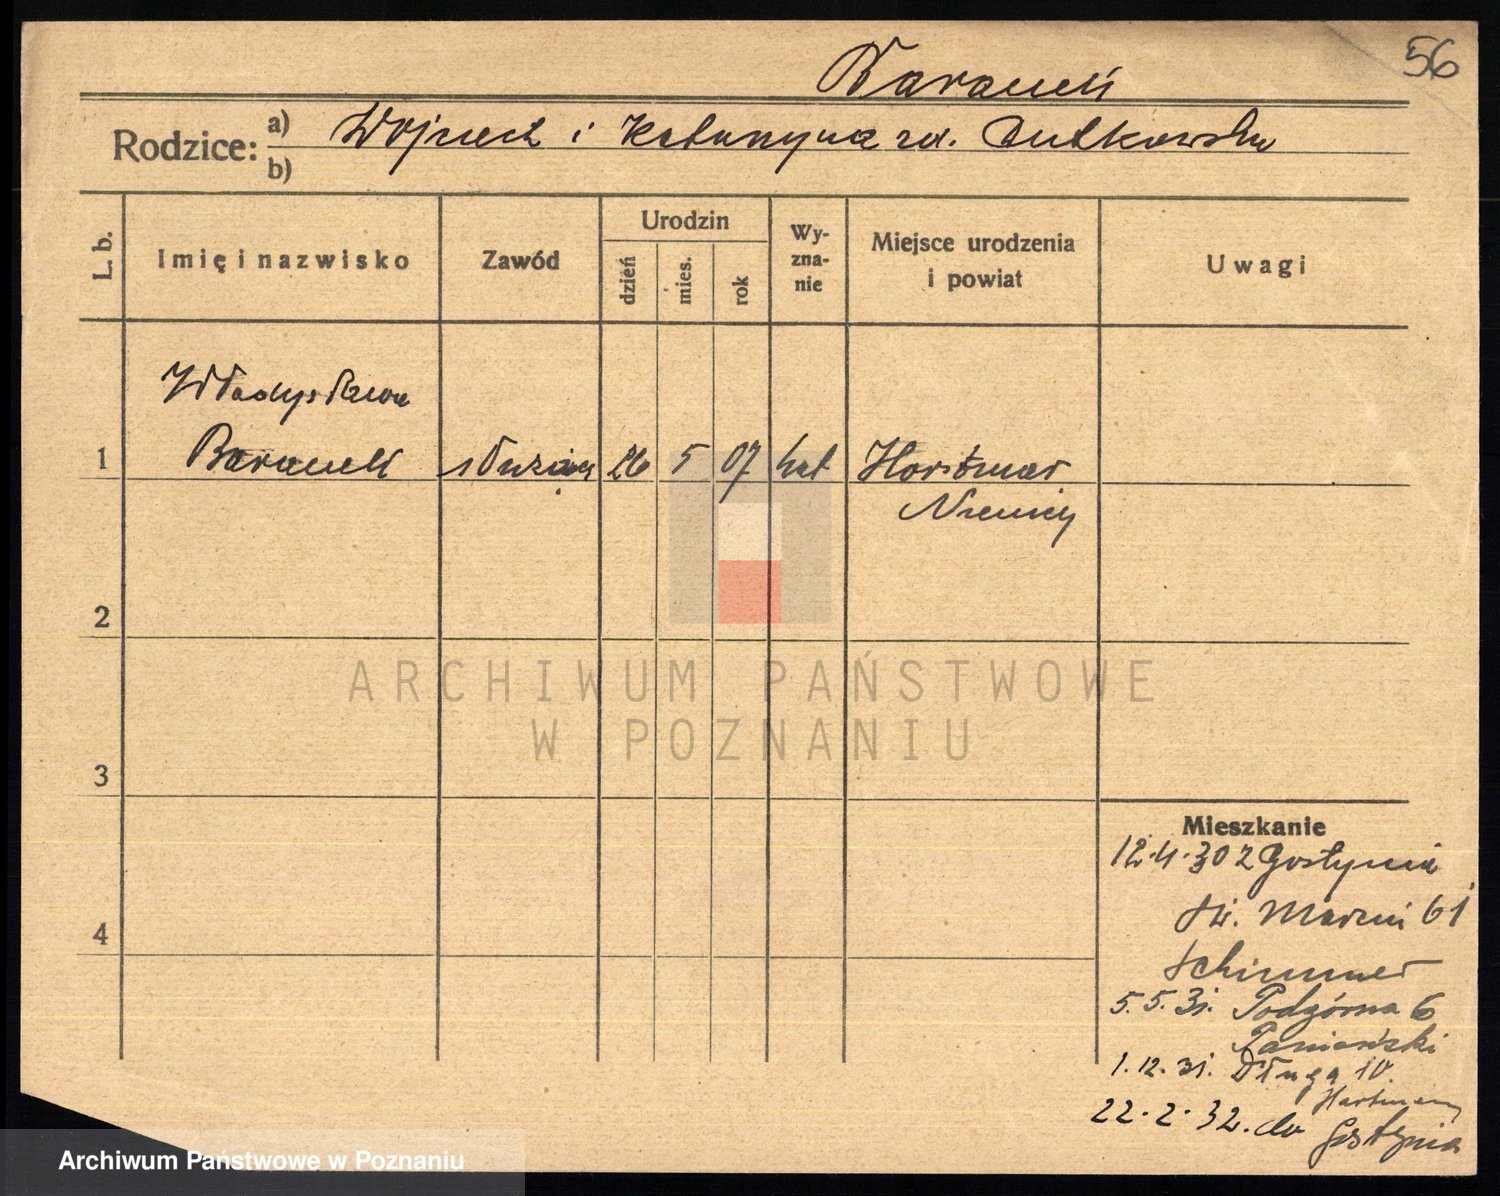 56
Baranek
Rodzice: a) Wojciech i Katarzyna zd. Dutkowska
b)
L. b.
Imię i nazwisko
Zawód
Urodzin
dzień
mies.
rok
Wy-
zna-
nie
Miejsce urodzenia
i powiat
Uwagi
Władysława
1 Baranek służąca 26 5 07 kat Horstmar
Niemcy
2
3
4
ARCHIWUM PAŃSTWOWE
W POZNANIU
Mieszkanie
12.4.30 z Gostynia
Św. Marcin 61
Schirmer
5.5.31. Podgórna 6
1.12.31. Długa 10.
Hartman
22.2.32. do Gostynia
Archiwum Państwowe w Poznaniu